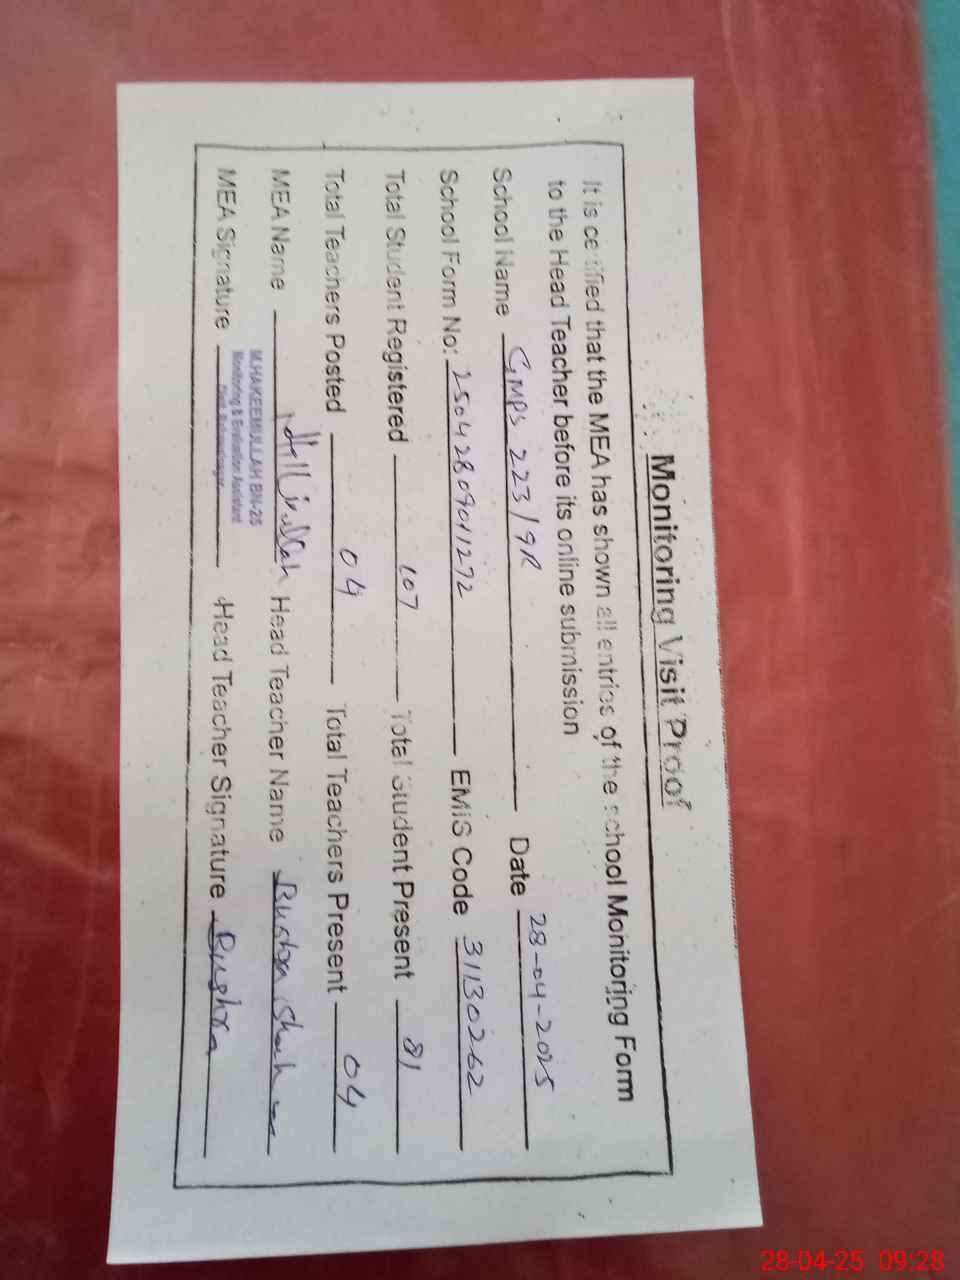 Monitoring Visit Proof
It is certified that the MEA has shown all entries of the school Monitoring Form
to the Head Teacher before its online submission
School Name GMPS 223/9R Date 28-04-2025
School Form No: 25042809011272 EMIS Code 31130262
Total Student Registered 107 Total Student Present 81
Total Teachers Posted 04 Total Teachers Present 04
MEA Name Head Teacher Name Bushra
M.HAKEEMULLAH BN-25
Monitoring & Evaluation Assistant
MEA Signature Head Teacher Signature Bushra
28-04-25 09:28